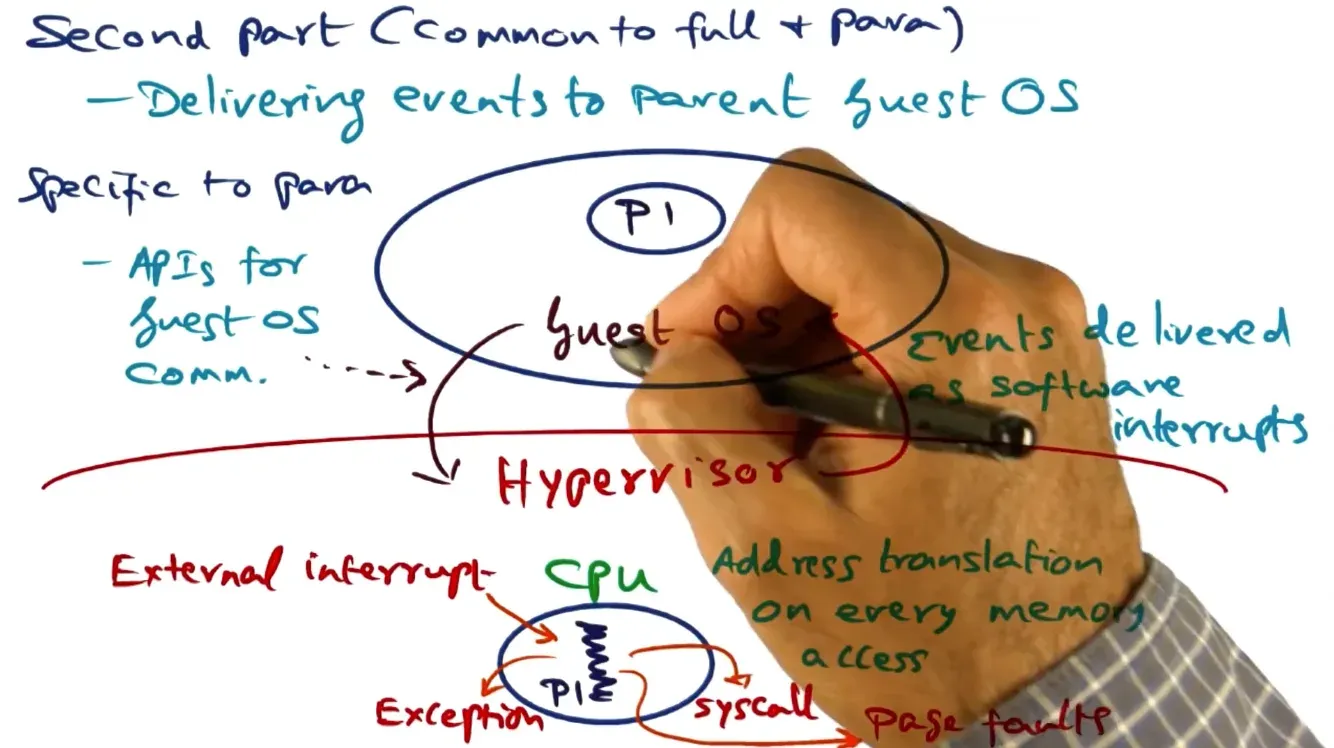 Second part (Common to full + para)
- Delivering events to parent Guest OS
Specific to para
- APIs for
Guest OS
comm.
P1
Guest OS
Events delivered
as software
interrupts
Hypervisor
External interrupt
CPU
Address translation
on every memory
access
P1
Exception
syscall
page faults